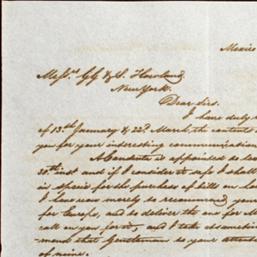 Mexico
Mess.rs GG & S. Howland
New York.
Dear Sirs.
I have duly
of 13th January & 22d March, the contents
you for your interesting communication
A Conducta is appointed to lea
30th inst and if I consider it safe I shall
in specie for the purchase of bills on Lon
I have now merely to recommend you
for Europe, and to deliver the one for M
call on you for it, and I take
mend that Gentleman to your attent
of mine.